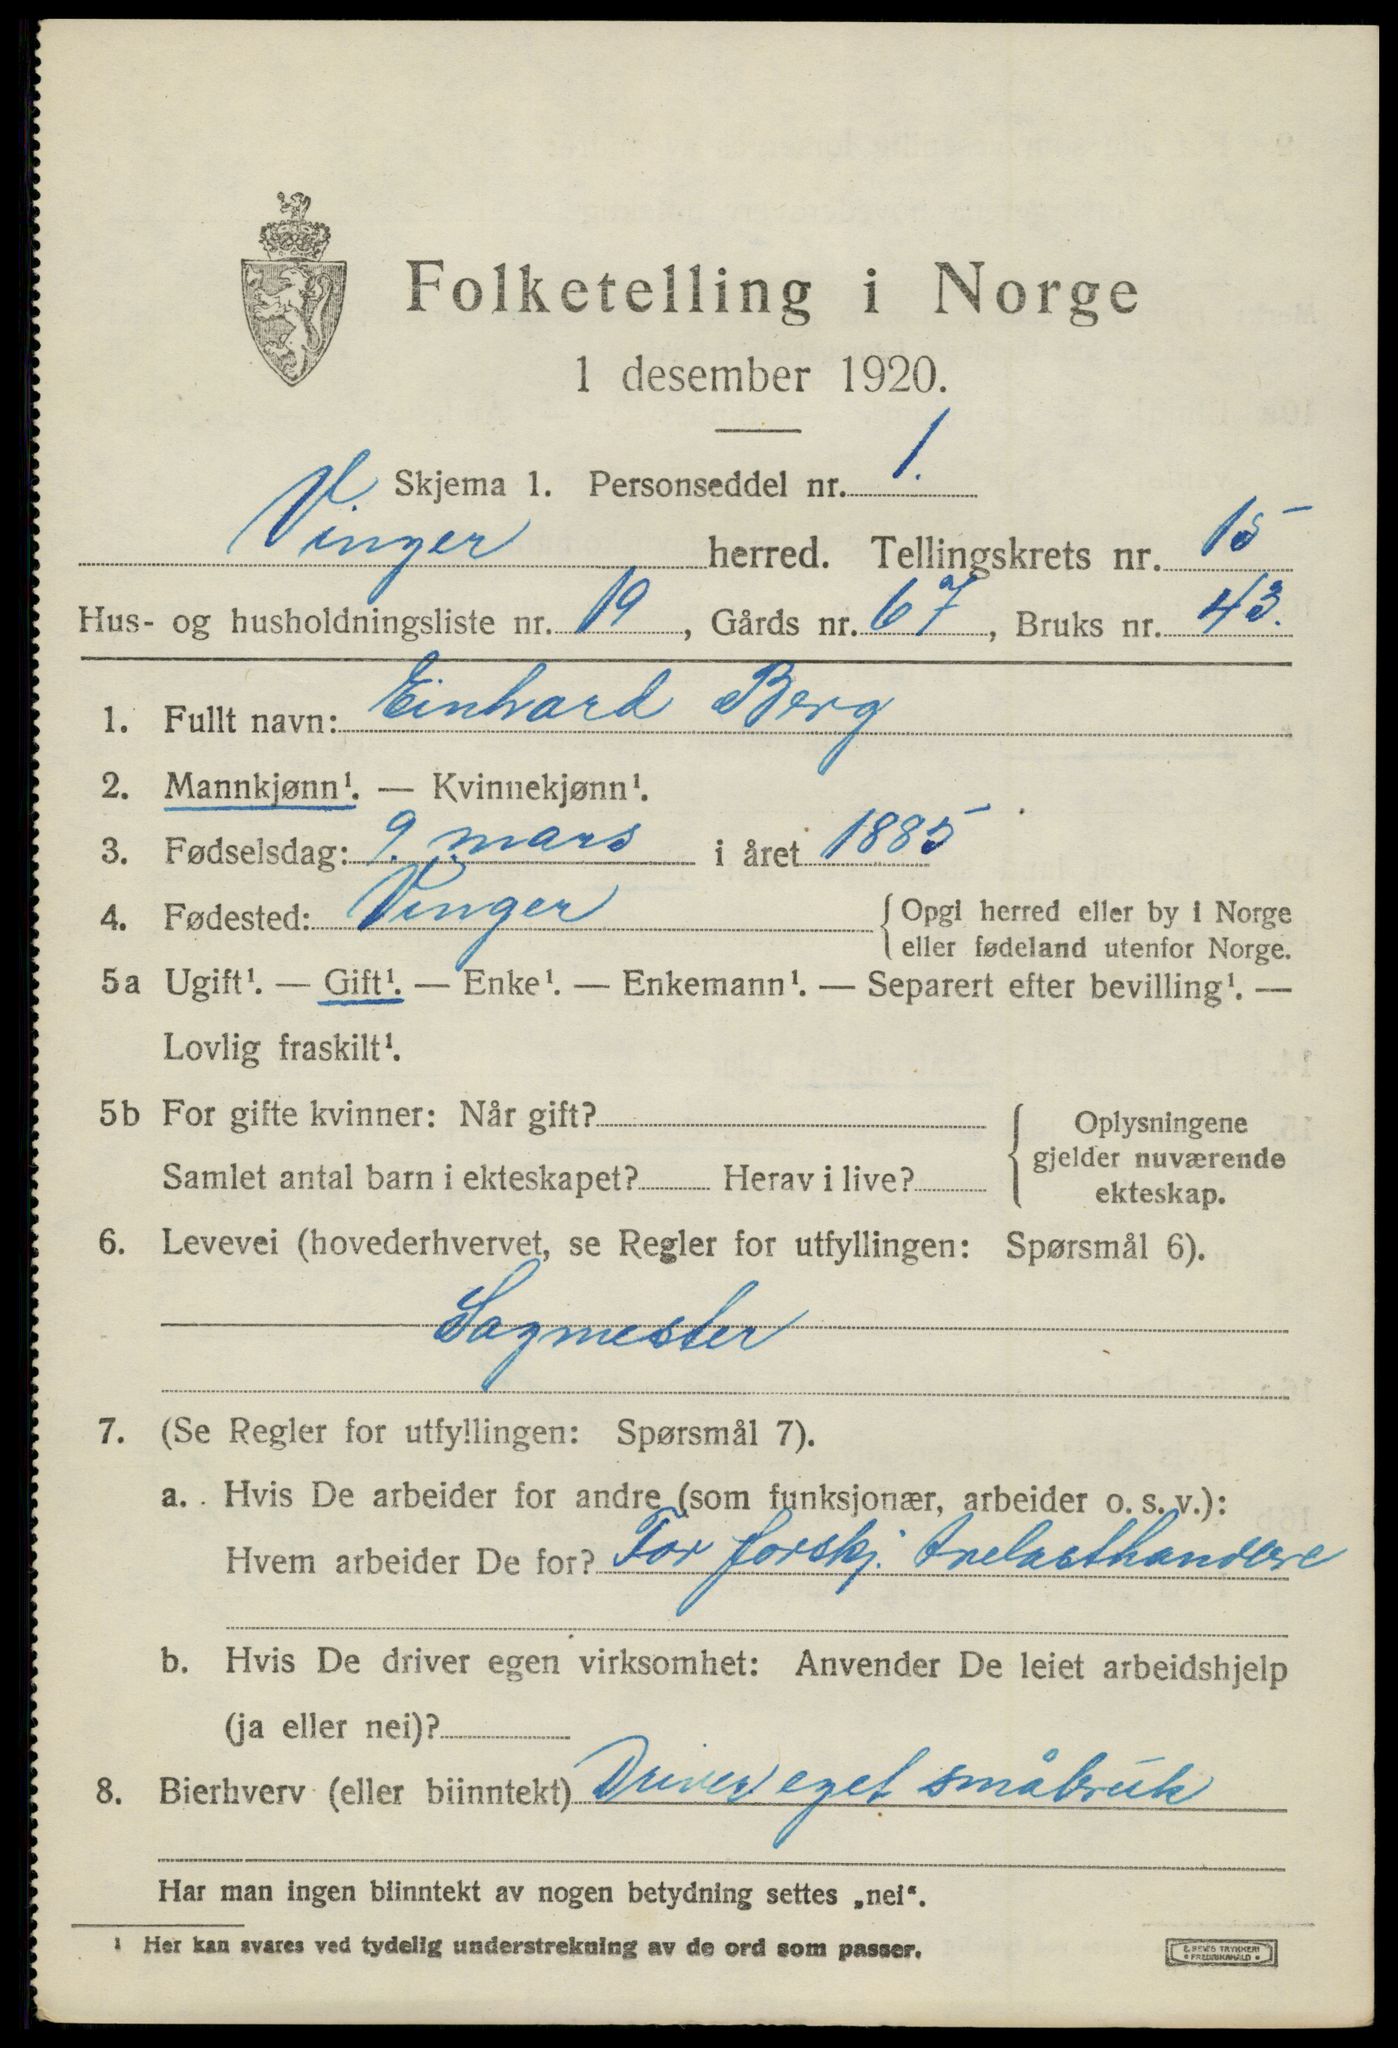 Folketelling i Norge
1 desember 1920.
Skjema 1. Personseddel nr. 1.
Vinger herred. Tellingskrets nr. 15
Hus- og husholdningsliste nr. 19, Gårds nr. 67, Bruks nr. 43.
1. Fullt navn: Einhard Berg
2. Mannkjønn¹. — Kvinnekjønn¹.
3. Fødselsdag: 9. mars i året 1885
4. Fødested: Vinger {Opgi herred eller by i Norge
eller fødeland utenfor Norge.
5a Ugift¹. — Gift¹. — Enke¹. — Enkemann¹. — Separert efter bevilling¹. —
Lovlig fraskilt¹.
5b For gifte kvinner: Når gift? { Oplysningene
gjelder nuværende
Samlet antal barn i ekteskapet? Herav i live?
ekteskap.
6. Levevei (hovederhvervet, se Regler for utfyllingen: Spørsmål 6).
Sagmester
7. (Se Regler for utfyllingen: Spørsmål 7).
a. Hvis De arbeider for andre (som funksjonær, arbeider o. s. v.):
Hvem arbeider De for? For forskj. trelasthandlere
b. Hvis De driver egen virksomhet: Anvender De leiet arbeidshjelp
(ja eller nei)?
8. Bierhverv (eller biinntekt) Driver eget småbruk
Har man ingen biinntekt av nogen betydning settes „nei“.
¹ Her kan svares ved tydelig understrekning av de ord som passer.